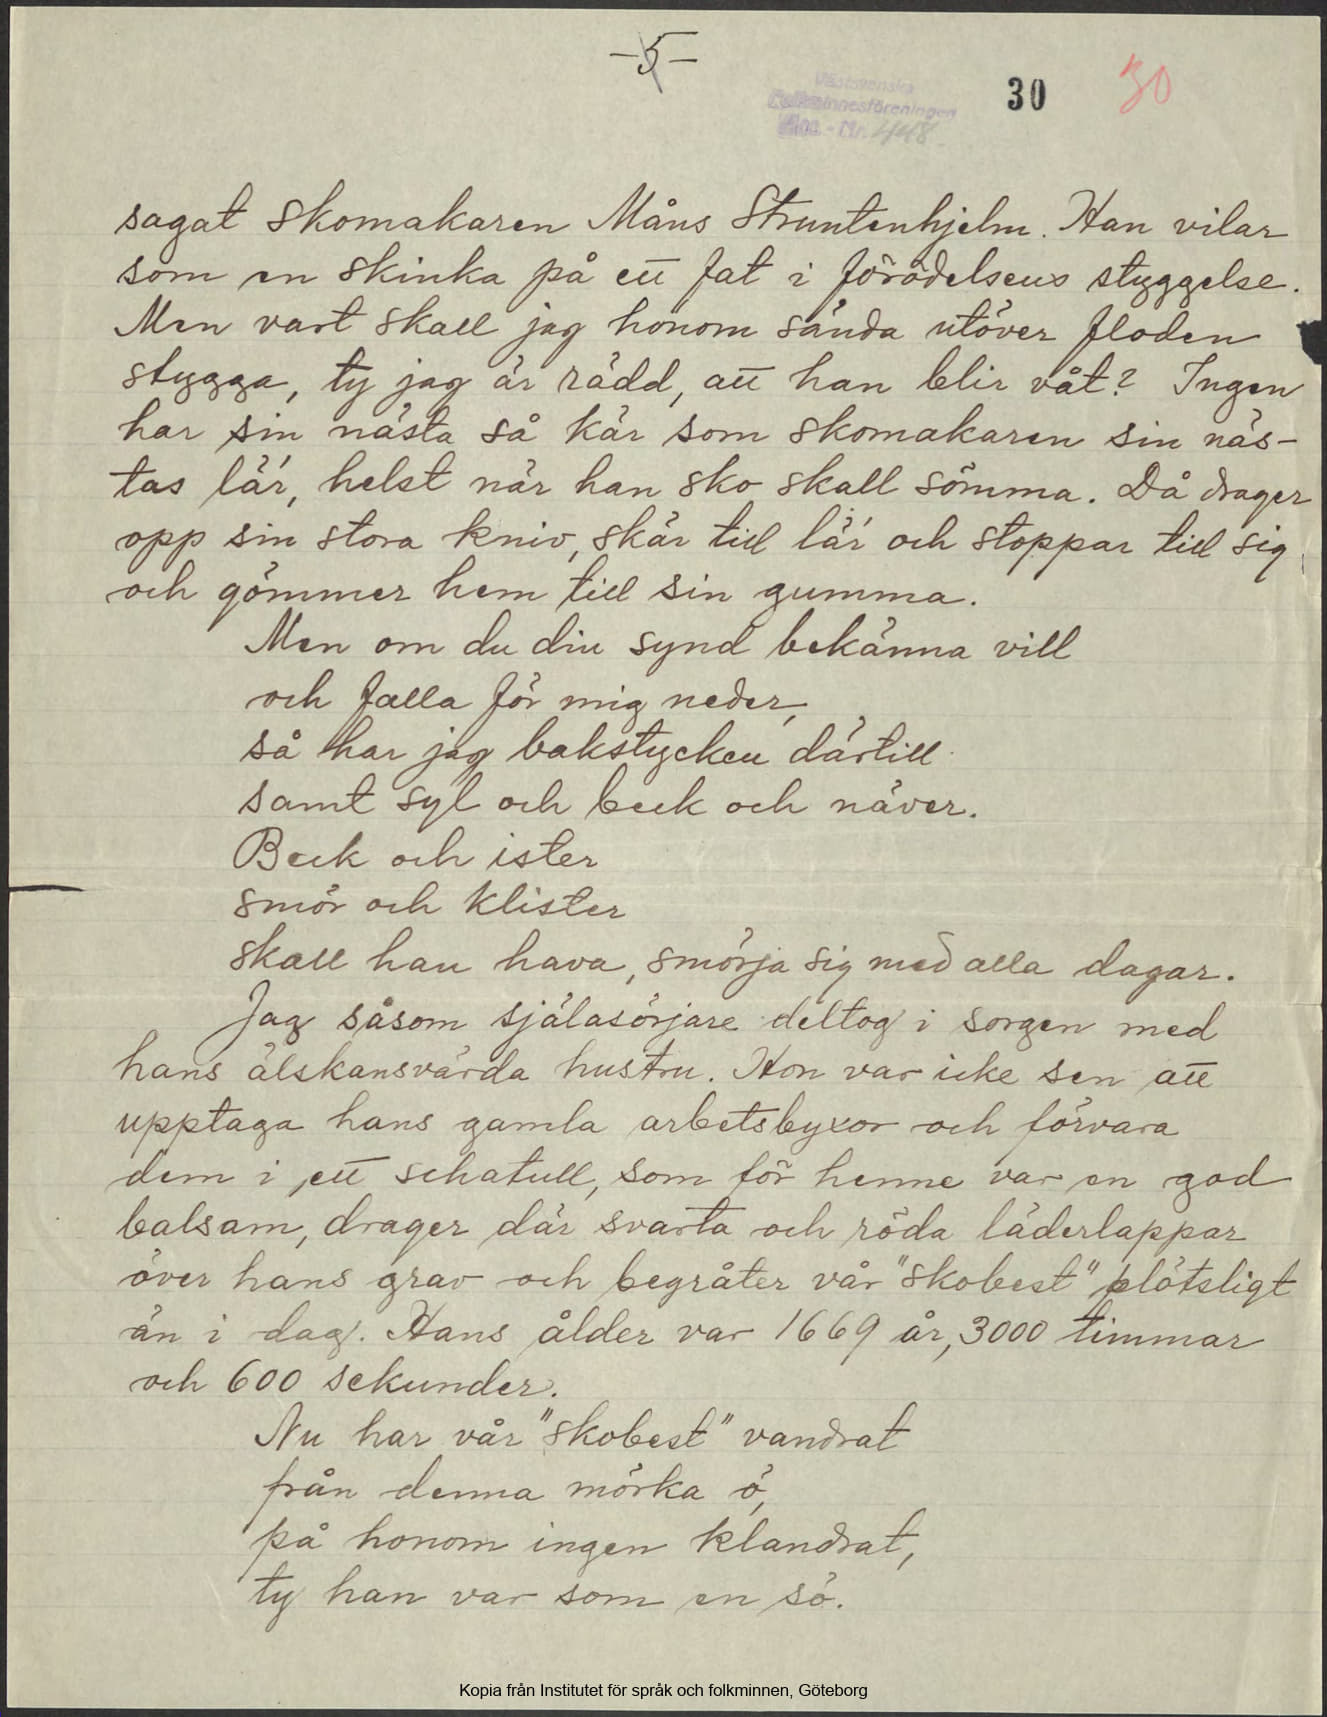 -5-
Västsvenska
Folkminnesföreningen
Acc. - Nr. 448
30
30
sagat skomakaren Måns Struntenhjelm. Han vilar
som en skinka på ett fat i förödelsens styggelse.
Men vart skall jag honom sända utöver floden
stygga, ty jag är rädd, att han blir våt? Ingen
har sin nästa så kär som skomakaren sin näs-
tas lär, helst när han sko skall sömma. Då drager
opp sin stora kniv, skär till lär och stoppar till sig
och gömmer hem till sin gumma.
Men om du din synd bekänna vill
och falla för mig neder,
så har jag bakstycken därtill
samt syl och beck och näver.
Beck och ister
smör och klister
skall han hava, smörja sig med alla dagar.
Jag såsom själasörjare deltog i sorgen med
hans älskansvärda hustru. Hon var icke sen att
upptaga hans gamla arbetsbyxor och förvara
dem i ett schatull, som för henne var en god
balsam, drager där svarta och röda läderlappar
över hans grav och begråter vår "skobest" plötsligt
än i dag. Hans ålder var 1669 år, 3000 timmar
och 600 sekunder.
Nu har vår "skobest" vandrat
från denna mörka ö,
på honom ingen klandrat,
ty han var som en sö.
Kopia från Institutet för språk och folkminnen, Göteborg